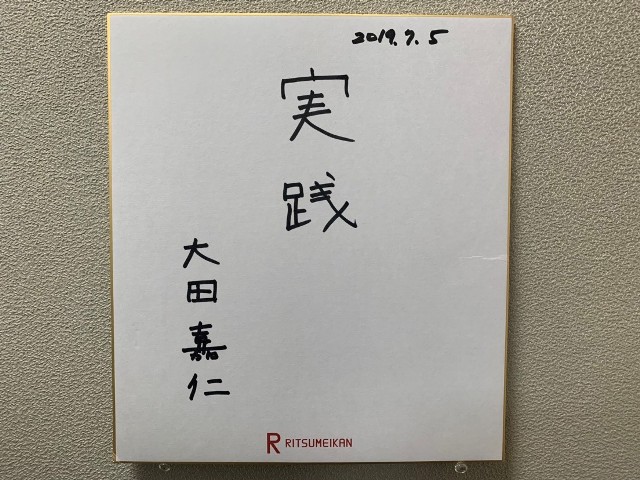 2019.7.5
実践
大田嘉仁
R RITSUMEIKAN